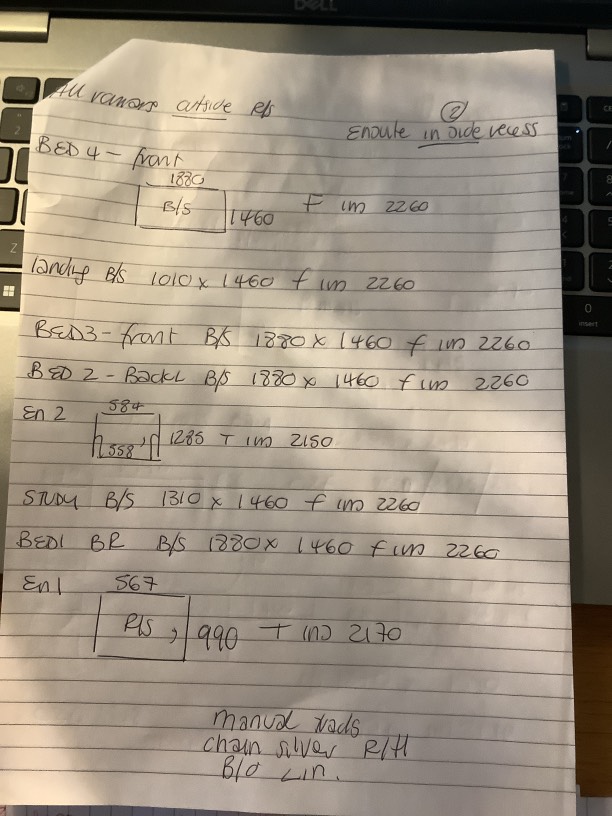 DELL
All outside R/S
②
in side recess
BED 4 - front
1880
B/S 1460 F im 2260
landing B/S 1010 x 1460 f im 2260
BED3 - front B/S 1880 x 1460 f im 2260
BED 2 - Back B/S 1880 x 1460 f im 2260
En 2 584
558 1285 T im 2150
STUDY B/S 1310 x 1460 f im 2260
BED1 BR B/S 1880 x 1460 f im 2260
En1 567
R/S, 990 T im 2170
manual
chain silver R/H
B/O Lin.
insert